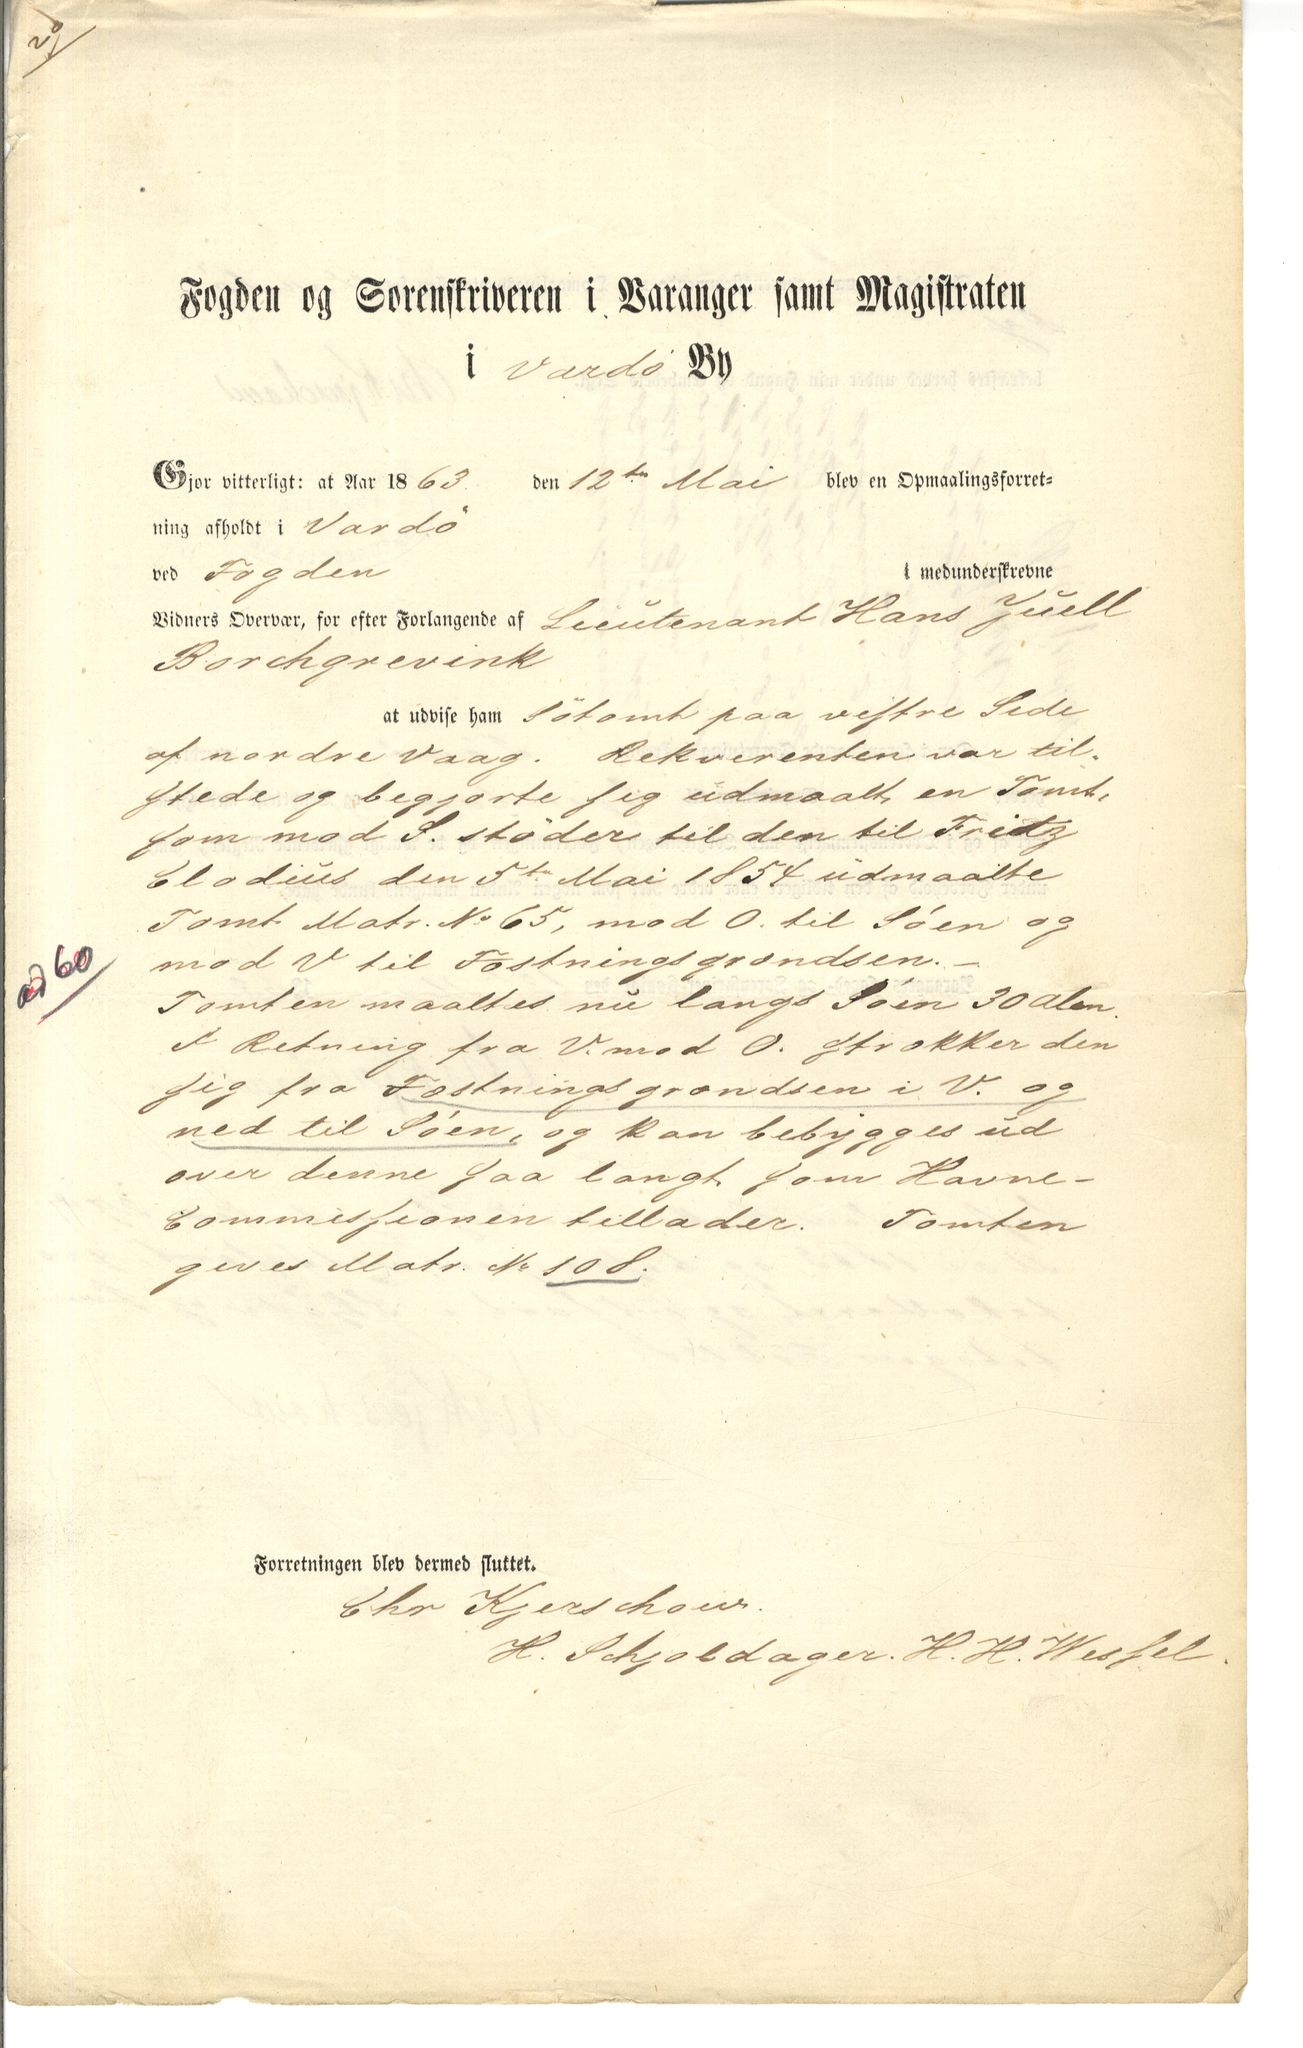 20
Fogden og Sorenskriveren i Varanger samt Magistraten
i Vardö By
Gjør vitterligt: at Aar 1863 den 12te Mai blev en Opmaalingsforret-
ning afholdt i Vardö
ved Fogden i medunderskrevne
Vidners Overvær, for efter Forlangende af Lieutenant Hans Juell
Borchgrevink
at udvise ham Sötomt paa vestre Side
af nordre Vaag. Rekvirenten var til-
stede og begjærte sig udmaalt en Tomt,
som mod S. stöder til den til Fritz
Clodius den 5te Mai 1854 udmaalte
Tomt Matr. No 65, mod O. til Søen og
mod V til Fæstningsgrændsen. –
ad 60
Tomten maaltes nu langs Søen 30 Alen.
I Retning fra V. mod O. strækker den
sig fra Fæstningsgrændsen i V. og
ned til Søen, og kan bebygges ud
over denne saa langt som Havne-
Commissionen tillader. Tomten
gives Matr. No 108.
Forretningen blev dermed sluttet.
Chr Kjerschow.
H. Schjoldager. H. H. Wessel.